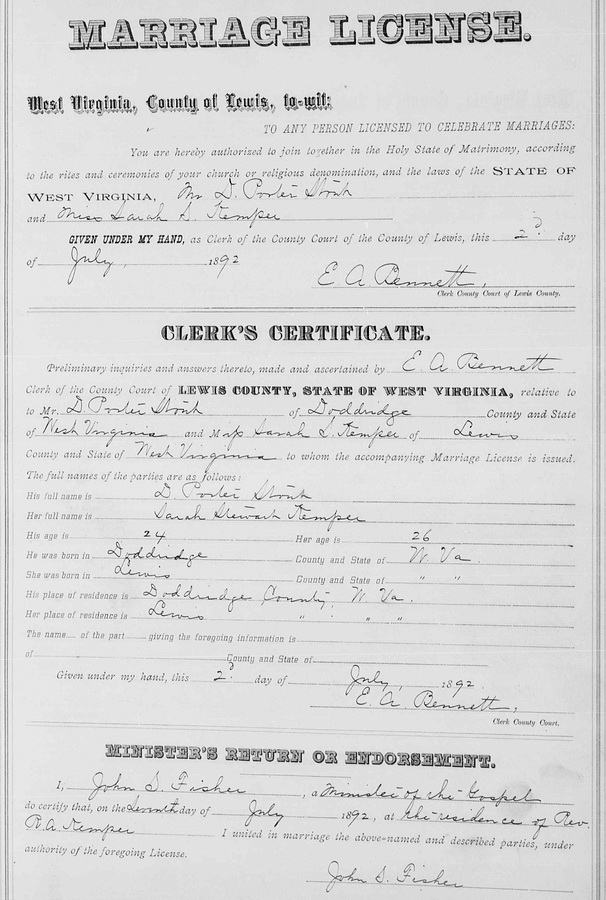 MARRIAGE LICENSE.
West Virginia, County of Lewis, to-wit:
TO ANY PERSON LICENSED TO CELEBRATE MARRIAGES:
You are hereby authorized to join together in the Holy State of Matrimony, according
to the rites and ceremonies of your church or religious denomination, and the laws of the STATE OF
WEST VIRGINIA, Mr D. Porter Stout
and Miss Sarah S. Kemper
GIVEN UNDER MY HAND, as Clerk of the County Court of the County of Lewis, this 2d day
of July, 1892
E. A. Bennett,
Clerk County Court of Lewis County.
CLERK'S CERTIFICATE.
Preliminary inquiries and answers thereto, made and ascertained by E. A. Bennett
Clerk of the County Court of LEWIS COUNTY, STATE OF WEST VIRGINIA, relative to
to Mr. D. Porter Stout of Doddridge County and State
of West Virginia and Miss Sarah S. Kemper of Lewis
County and State of West Virginia to whom the accompanying Marriage License is issued.
The full names of the parties are as follows:
His full name is D. Porter Stout
Her full name is Sarah Stewart Kemper
His age is 24 Her age is 26
He was born in Doddridge County and State of W. Va.
She was born in Lewis County and State of " "
His place of residence is Doddridge County, W Va.
Her place of residence is Lewis " " "
The name of the part giving the foregoing information is
of County and State of
Given under my hand, this 2d day of July, 1892.
E. A. Bennett,
Clerk County Court.
MINISTER'S RETURN OR ENDORSEMENT.
I, John S. Fisher, a Minister of the Gospel
do certify that, on the Seventh day of July 1892, at the residence of Rev.
R. A. Kemper I united in marriage the above-named and described parties, under
authority of the foregoing License.
John S. Fisher